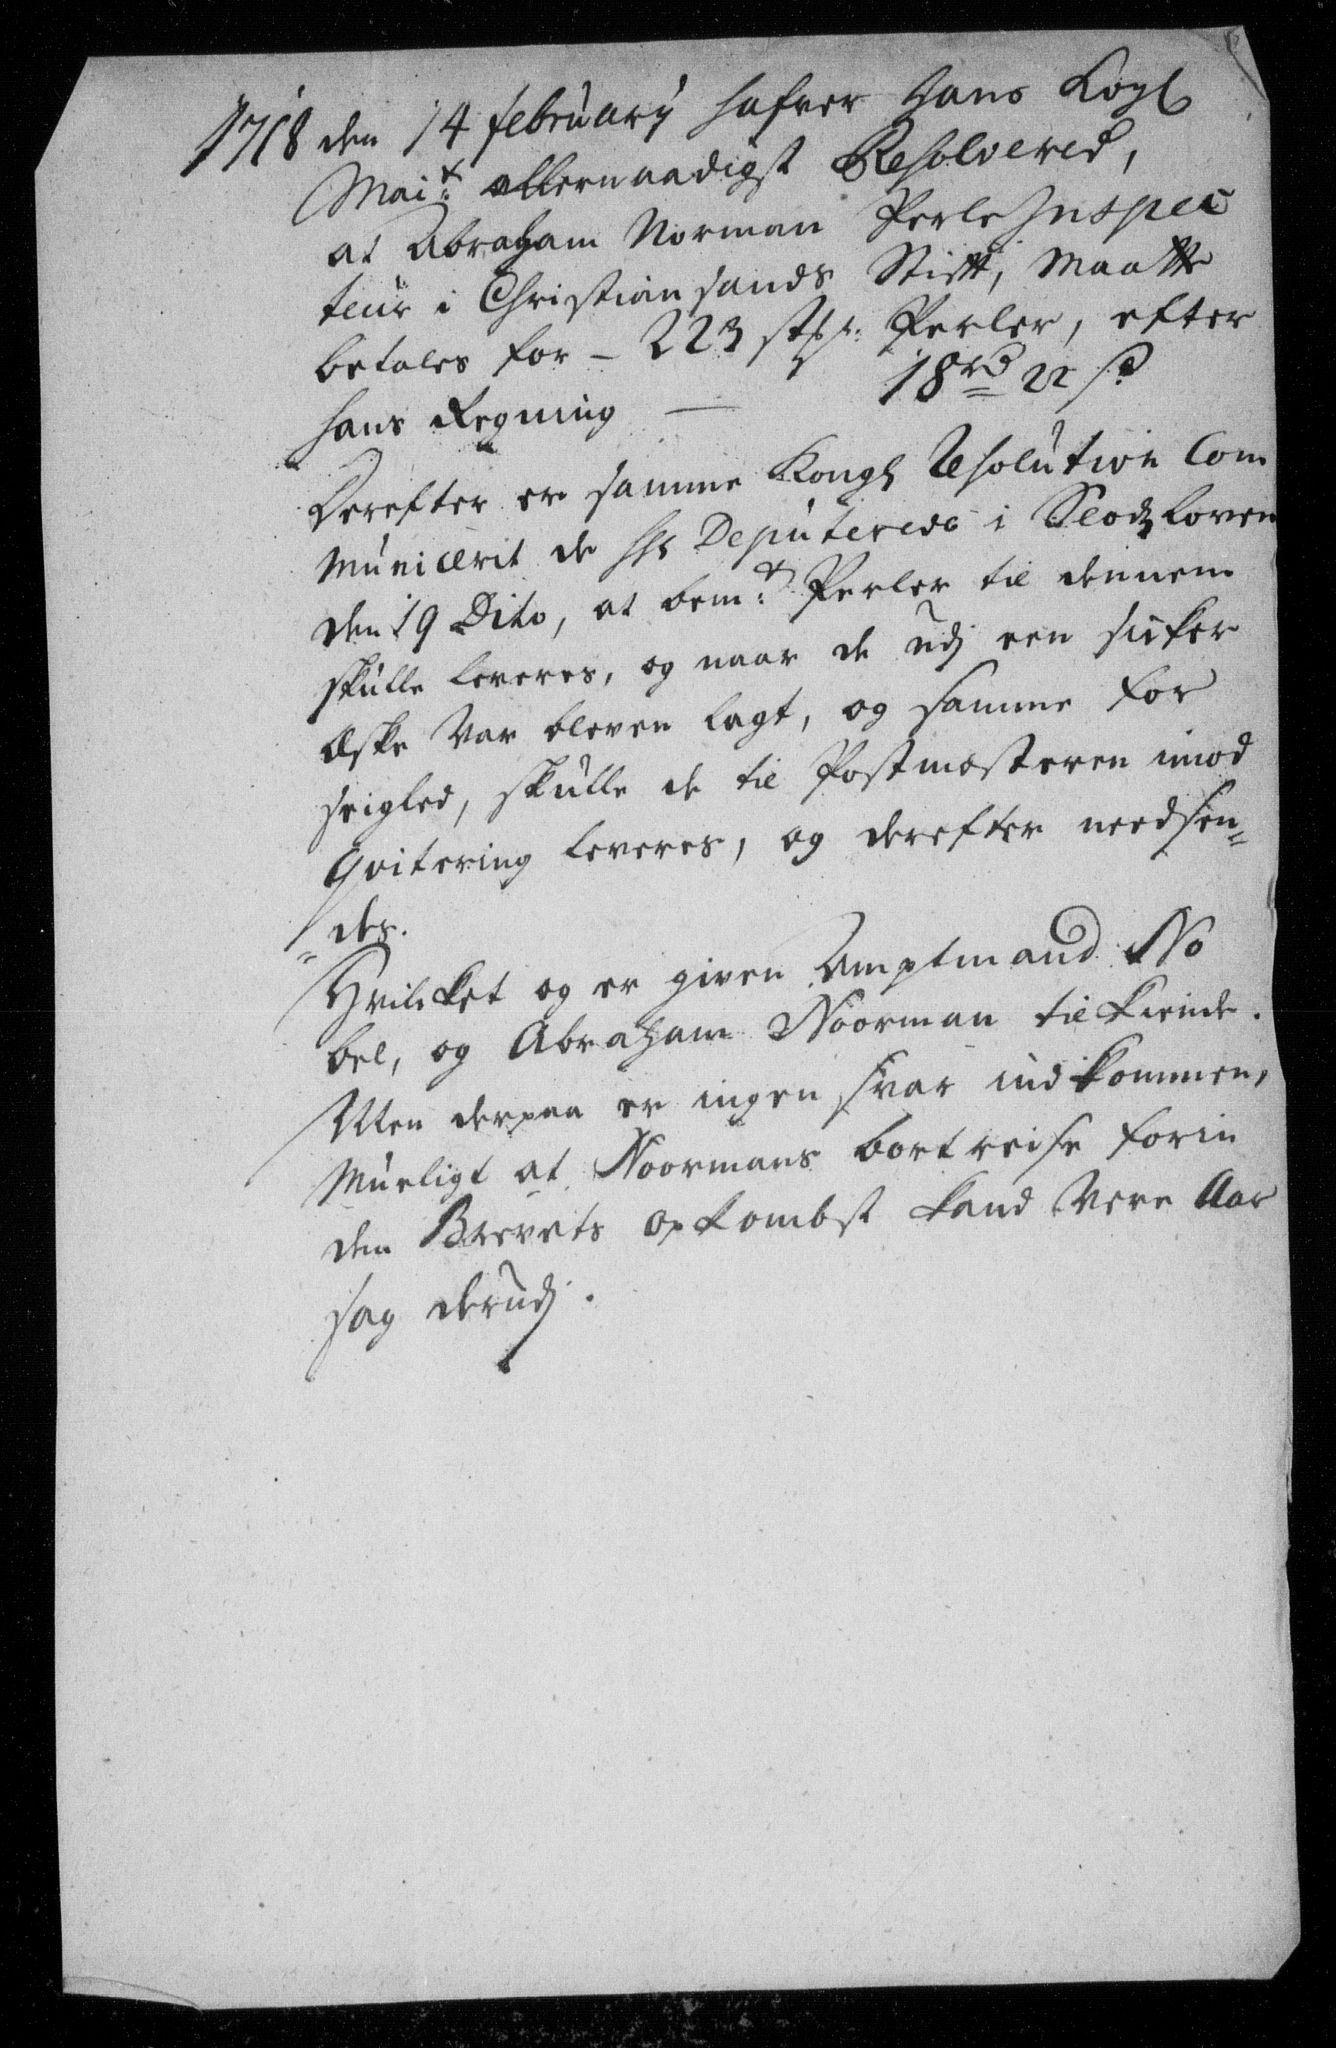 1718 den 14 february hafver Hans Kogl
Mai.t allernaadigst Resolvered,
at Abraham Norman Perle Inspec
teur i Christiansands Stift, Maatte
betales for - 223 stk: Perler, efter
hans Regning — 18 rd 22 s
Derefter er samme Kongl Resolution Com
municerit de hhr Deputerede i Slodzloven
den 19 Dito, at bem:t Perler til dennem
skulle leveres, og naar de udj een sicker
æske var bleven lagt, og samme for
seigled, skulle de til Postmesteren imod
qvitering leveres, og derefter needsen=
=des.
Hvilcket og er given Amptmand No
bel, og Abraham Noorman tilkiende.
Men derpaa er ingen svar indkommen,
Mueligt at Noormans bortreise forin
den Brevets opkombst kand være Aar
sag derudj.